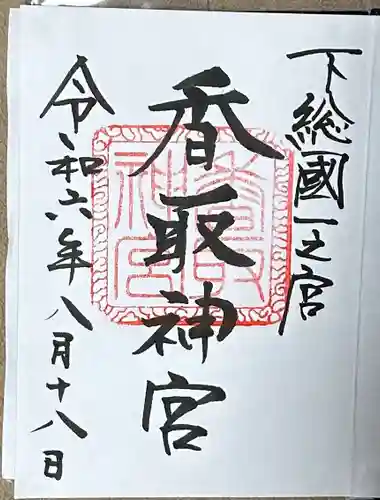 下総國一之宮
香取神宮
令和六年八月十八日